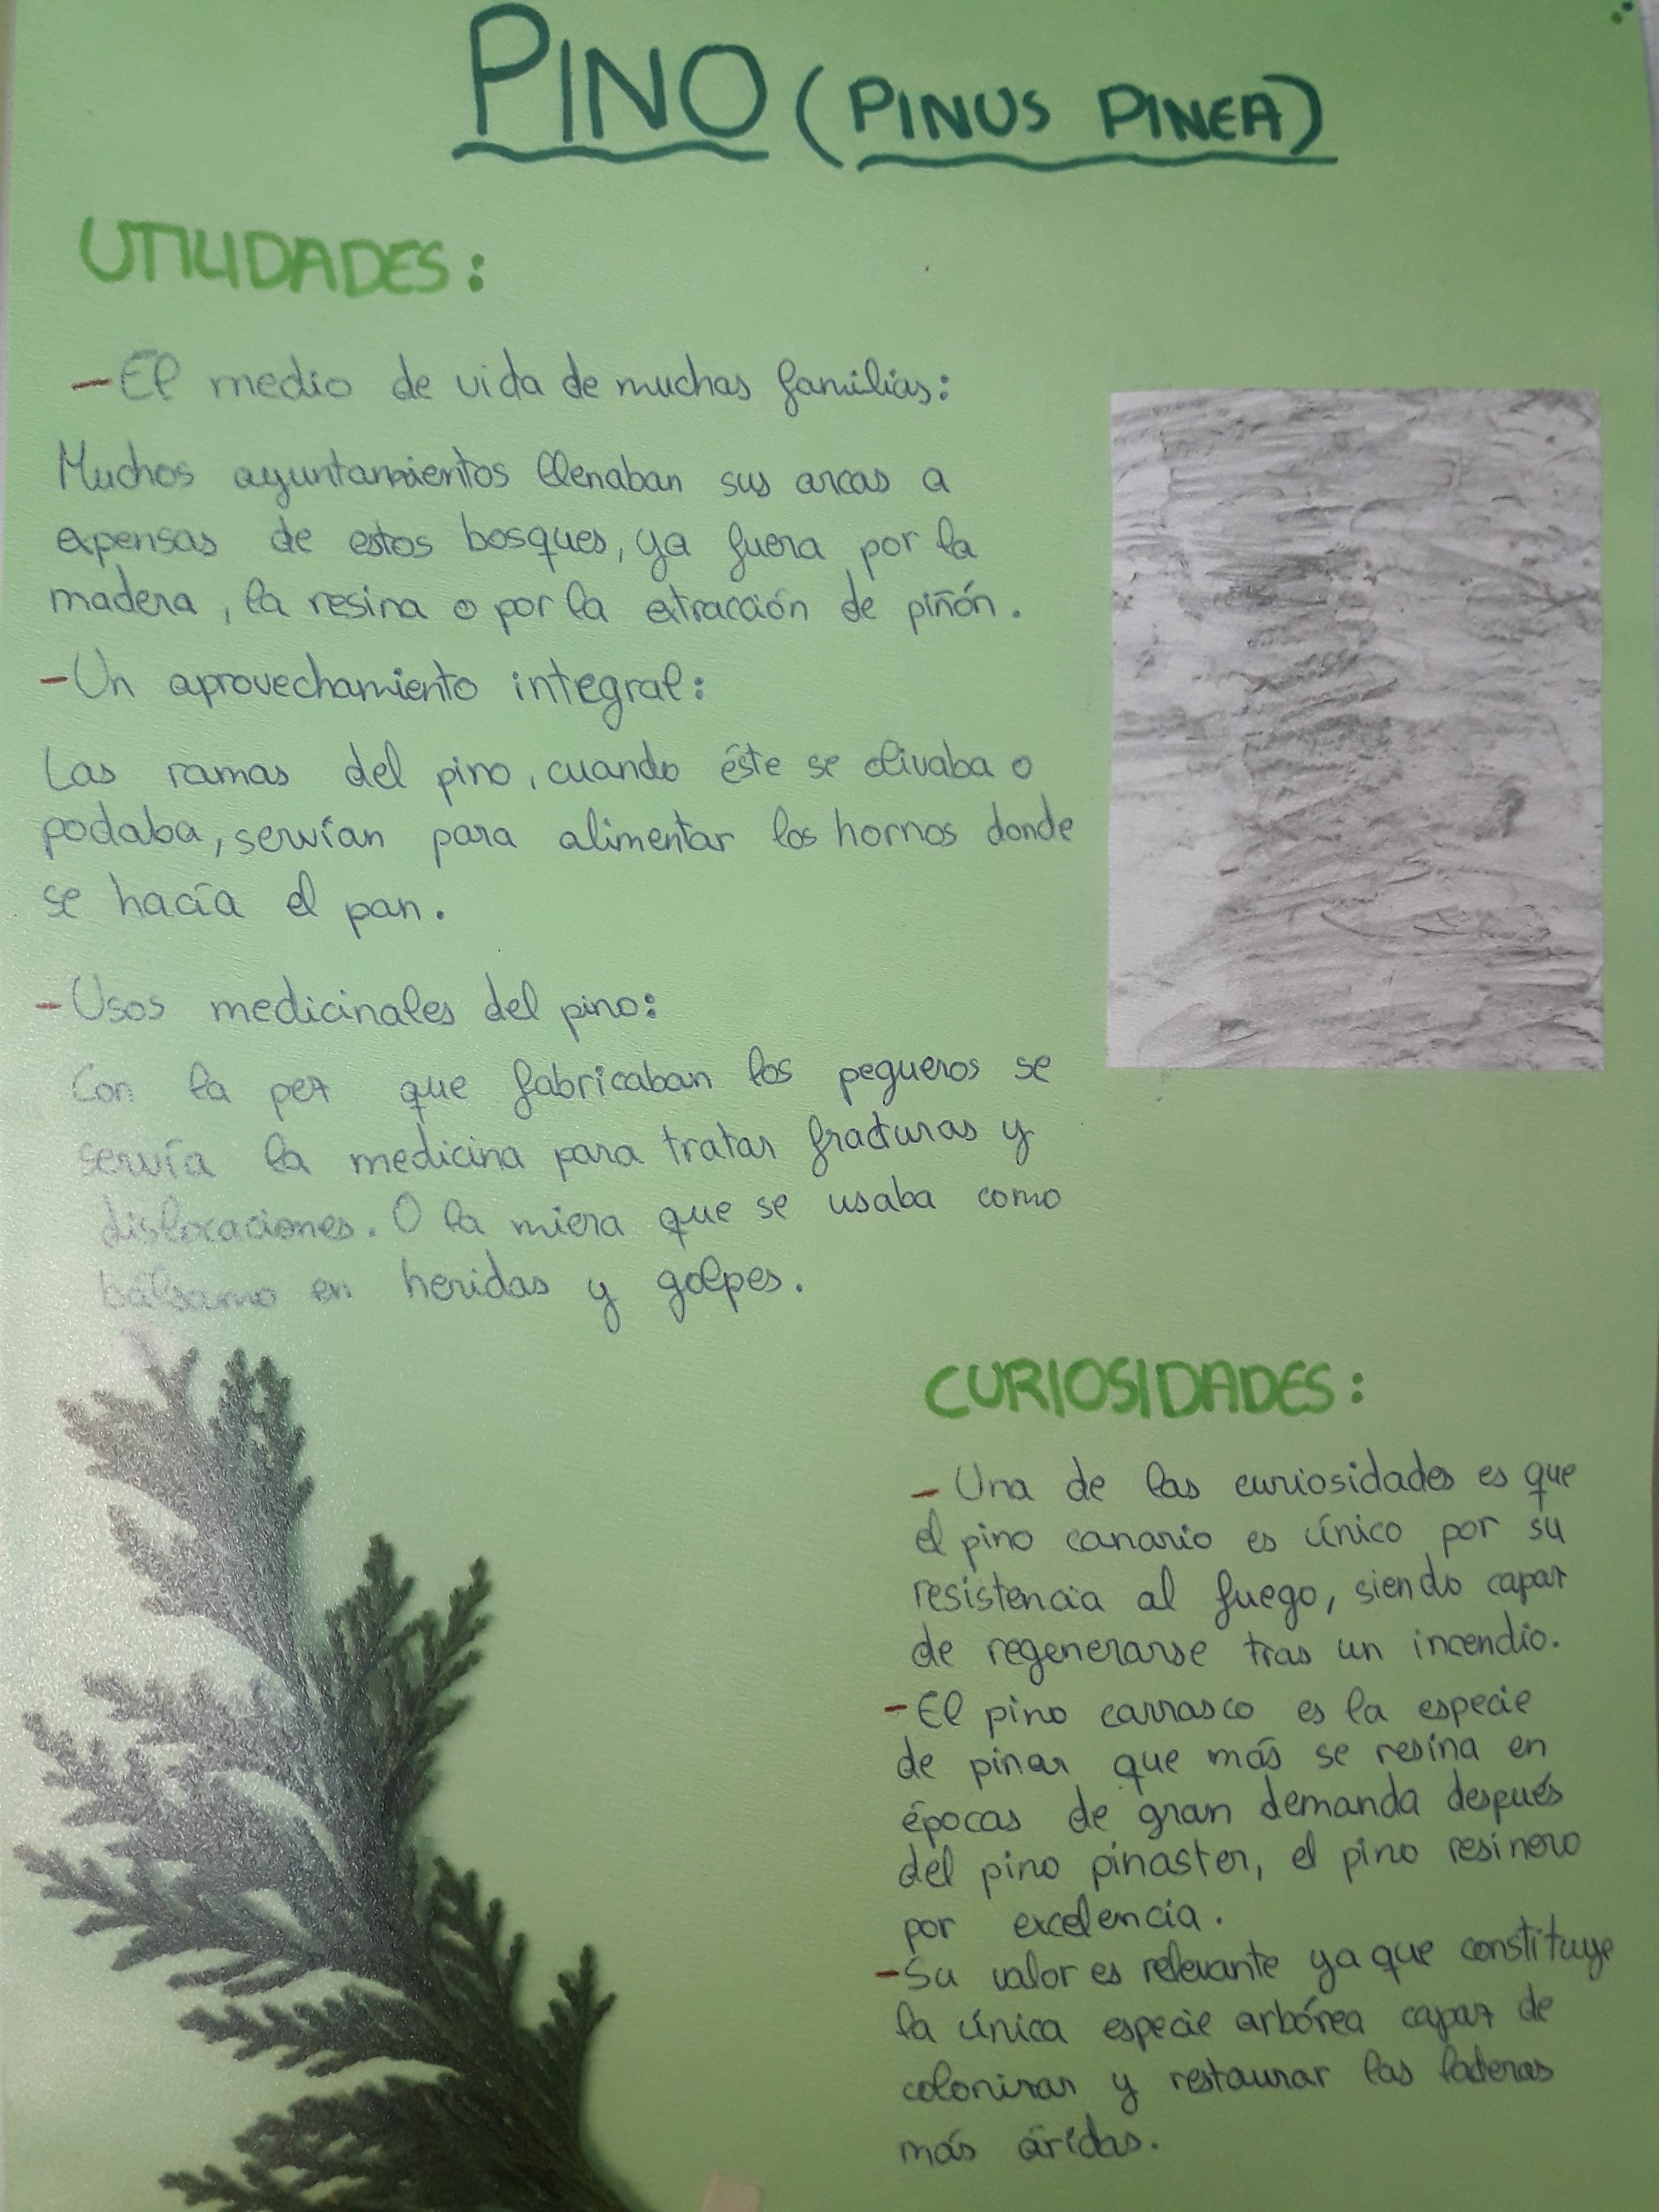 PINO (PINUS PINEA)
UTILIDADES:
- El medio de vida de muchas familias:
Muchos ayuntamientos llenaban sus arcas a
expensas de estos bosques, ya fuera por la
madera, la resina o por la extracción de piñón.
- Un aprovechamiento integral:
Las ramas del pino, cuando éste se olivaba o
podaba, servían para alimentar los hornos donde
se hacía el pan.
- Usos medicinales del pino:
Con la pez que fabricaban los pegueros se
servía la medicina para tratar fracturas y
dislocaciones. O la miera que se usaba como
bálsamo en heridas y golpes.
CURIOSIDADES:
- Una de las curiosidades es que
el pino canario es único por su
resistencia al fuego, siendo capaz
de regenerarse tras un incendio.
- El pino carrasco es la especie
de pinar que más se resina en
épocas de gran demanda después
del pino pinaster, el pino resinero
por excelencia.
- Su valor es relevante ya que constituye
la única especie arbórea capaz de
colonizar y restaurar las laderas
más áridas.